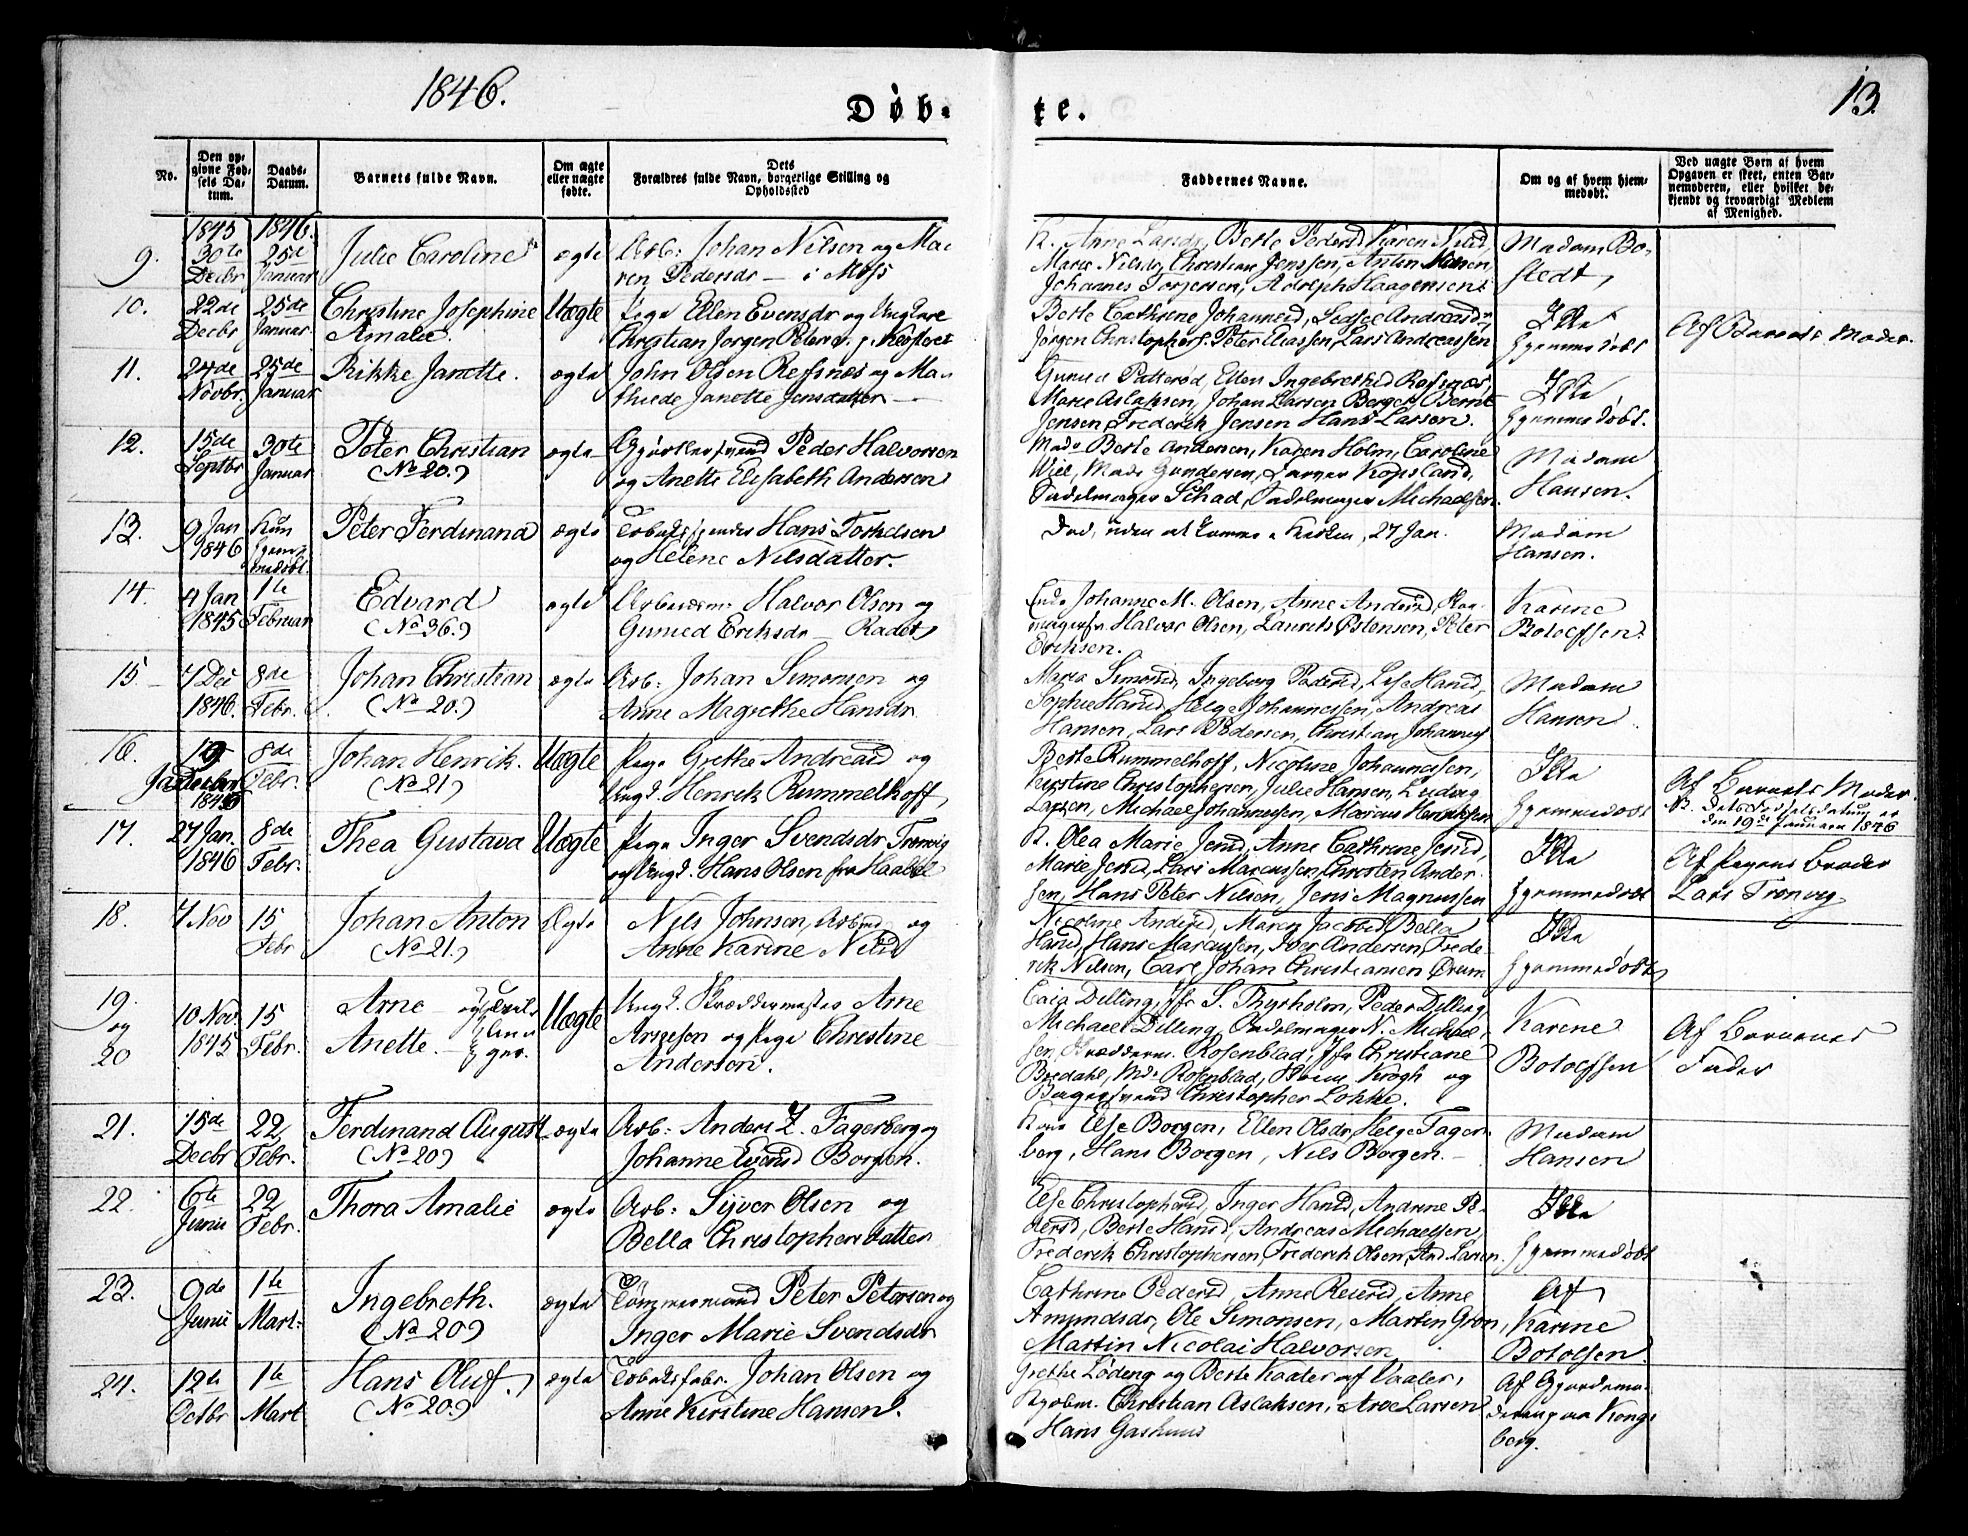 1846.
Døb-
te.
13.
No.
Den op-
givne Fød-
sels Da-
tum.
Daabs-
Datum.
Barnets fulde Navn.
Om ægte
eller uægte
fødte.
Dets
Forældres fulde Navn, borgerlige Stilling og
Opholdssted
Faddernes Navne.
Om og af hvem hjem-
medøbt.
Ved uægte Børn af hvem
Opgaven er skeet, enten Bar-
nemoderen, eller hvilket be-
kjendt og troværdigt Medlem
af Menighed.
1845 1846.
9. 30te Decbr 25de Januar
Julie Caroline
ægte
Arb: Johan Nilsen og Ma-
ren Pedersdr – i Moss
Anne Larsdr, Berte Pedersd, Karen Nilsd,
Marie Nilsdr, Christian Jenssen, Anton Hansen,
Johannes Torjersen, Adolph Haagensen
Madam Bo-
stedt,
10. 22de Decbr 25de Januar
Christine Josephine
Amalie.
Uægte
Pige Ellen Evensdr og Ungkarl
Christian Jørgen Peters.
Berte Cathrine Johannesd, Andreasdr
Jørgen Christophers. Peter Eliassen, Lars Andreassen
Ikke
hjemmedøbt
Af Barnets Moder.
11. 24de Novbr. 25de Januar
Rikke Janette.
ægte
John Olsen Refsnæs og Ma-
thilde Janette Jensdatter –
Gunild Patterød, Ellen Ingebrethsd Refsnæs,
Marie Aslaksen, Johan Larsen Berger, Bernt
Jensen, Frederik Jensen Hans Larsen.
Ikke
hjemmedøbt.
12. 15de Septbr 30te Januar
Peter Christian
(No 20.)
ægte
Gjørtlersvend Peder Halvorsen
og Anette Elisabeth Andersen
Mad. Berte Andersen, Karen Holm, Caroline
Wiel, Mads Gundersen,
Sadelmager Schad, Sadelmager Michaelsen.
Madam
Hansen.
13. 9 Jan 1846
Kun
hjem-
medøbt.
Peter Ferdinand
ægte
Hans Torkelsen
og Helene Nilsdatter.
Død, uden at komme i Kirken, 27 Jan.
Madam
Hansen.
14. 4 Jan 1845 1te Februar
Edvard
(No 36.)
ægte
Arbeidsm: Halvor Olsen og
Gunild Eriksdr – Radet
Johanne M. Olsen, Anne Andersd,
Halvor Olsen, Laurits Østensen, Peter
Eriksen.
Karine
Botolfsen.
15. 7 Dec 1846. 8de Febr.
Johan Christian
(No 20.)
ægte
Arb: Johan Simonsen og
Anne Magrethe Hansdr.
Maria Simonsd, Ingeborg Pedersd, Lise Hansd,
Sophie Hansd, Helge Johannessen, Andreas
Hansen, Lars Pedersen, Christian Johannes
Madam
Hansen
16. 19 8de Febr.
Johan Henrik.
(No 21)
Uægte
Pige Grethe Andreasd og
Ungk. Henrik Rummelhoff,
Berte Rummelhoff, Nicoline Johannessen,
Kirstine Christophersen, Julie Hansen, Ludvig
Larsen, Michael Johannessen, Marcus Henriksen
Ikke
hjemmedøbt
Af Barnets Moder.
NB. Dets Fødselsdatum er
den 19de Januar 1846
17. 27 Jan. 1846 8de Febr.
Thea Gustava
Uægte
Pige Inger Svendsdr Tronvig
og Ungk. Hans Olsen fra Haabøl
Olea Marie Jensd, Anne Cathrine Jensd,
Marie Jensd, Lars Marcussen, Christen Ander-
sen, Hans Peter Nilsen, Jens Magnussen
Ikke
hjemmedøbt
Af Pigens Broder
Lars Tronvig
18. 7 Nov 15 Febr
Johan Anton
(No 21.)
Ægte
Nils Johnsen, Arbmd og
Anne Karine Nilsd
Nicoline Andersd, Maren Jacobsd Bella
Hansd, Hans Marcussen, Iver Andersen, Frede-
rik Nilsen, Carl Johan Christiansen Ørum
Ikke
hjemmedøbt
19.
og
20
10 Nov. 1845 15 Febr.
Arne – og
Anette. –
Tvil-
lin-
ger.
Uægte
Ungk. Skræddermester Arne
Arnesen og Pige Christine
Andersen.
Caia Dilling, Jfr S. Thyrholm, Peder Dilling,
Michael Dilling, Sadelmager N. Michael-
sen, Skrædderm. Rosenblad, Jfr Christiane
Bredahl, Md. Rosenblad, Krogh og
Bagersvend Christopher Løkke.
Karine
Botolfsen
Af Barnets
Fader
21. 15de Decbr 22 Febr.
Ferdinand August
(No 20)
ægte
Arb: Anders L. Fagerberg og
Johanne Evensd Borgen.
Else Borgen, Ellen Olsdr, Helge Fager-
berg, Hans Borgen, Nils Borgen. –
Madam
Hansen
22. 6te Junii 22 Febr.
Thora Amalie
ægte
Arb: Syver Olsen og
Bella Christophersdatter
Else Christophersd, Inger Hansd, Andrine Pe-
dersd, Berte Hansd, Andreas Michaelsen,
Frederik Christophersen, Frederik Olsen, And. Larsen.
Ikke
hjemmedøbt
23. 9de Junii 1te Mart:
Ingebreth.
(No 20)
ægte
Tømmermand Peter Petersen og
Inger Marie Svendsdr
Cathrine Pedersd, Anne Reiersd, Anne
Amundsdr, Ole Simonsen, Morten Gron,
Martin Nicolai Halvorsen
Af
Karine
Botolfsen.
24. 12te Octbr 1te Mart
Hans Oluf,
(No 20.)
ægte
Tobaksfabr. Johan Olsen og
Anne Kirstine Hansen.
Grethe Løding og Berte Kaaler af Vaaler,
Christian Aslaksen, Arve Larsen
Hans Gashuus
Af Gjordemo-
deren paa Kongs-
berg.